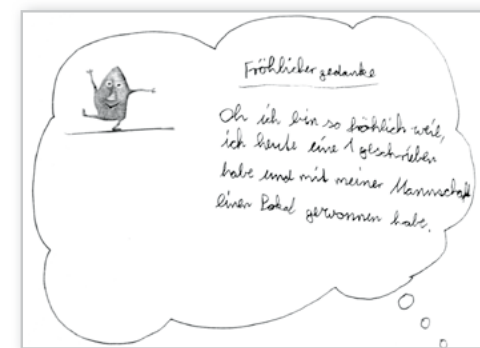 Fröhlicher gedanke
Oh ich bin so fröhlich weil,
ich heute eine 1 geschrieben
habe und mit meiner Mannschaft
einen Pokal gewonnen habe.